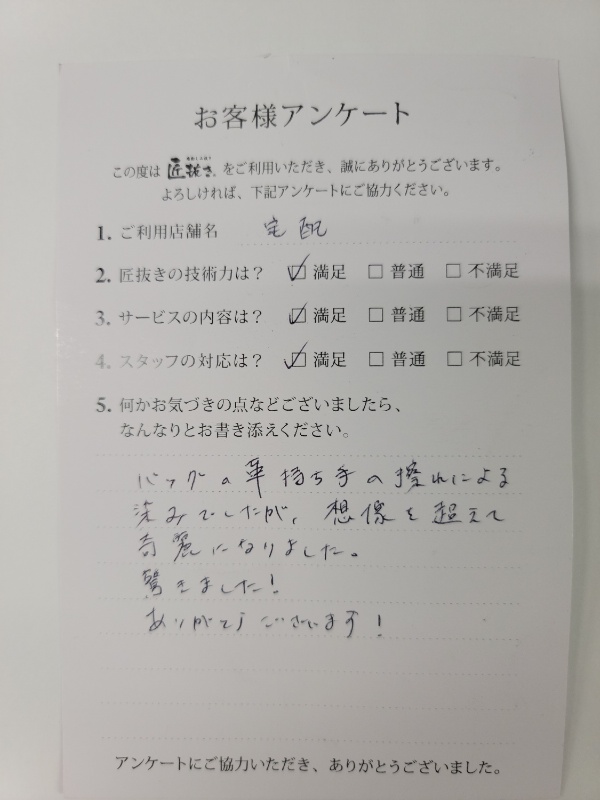 お客様アンケート
この度は 匠抜き をご利用いただき、誠にありがとうございます。
よろしければ、下記アンケートにご協力ください。
1. ご利用店舗名 宅配
2. 匠抜きの技術力は? ☑ 満足 □ 普通 □ 不満足
3. サービスの内容は? ☑ 満足 □ 普通 □ 不満足
4. スタッフの対応は? ☑ 満足 □ 普通 □ 不満足
5. 何かお気づきの点などございましたら、
なんなりとお書き添えください。
バッグの革持ち手の擦れによる
染みでしたが、想像を超えて
奇麗になりました。
驚きました!
ありがとうございます!
アンケートにご協力いただき、ありがとうございました。